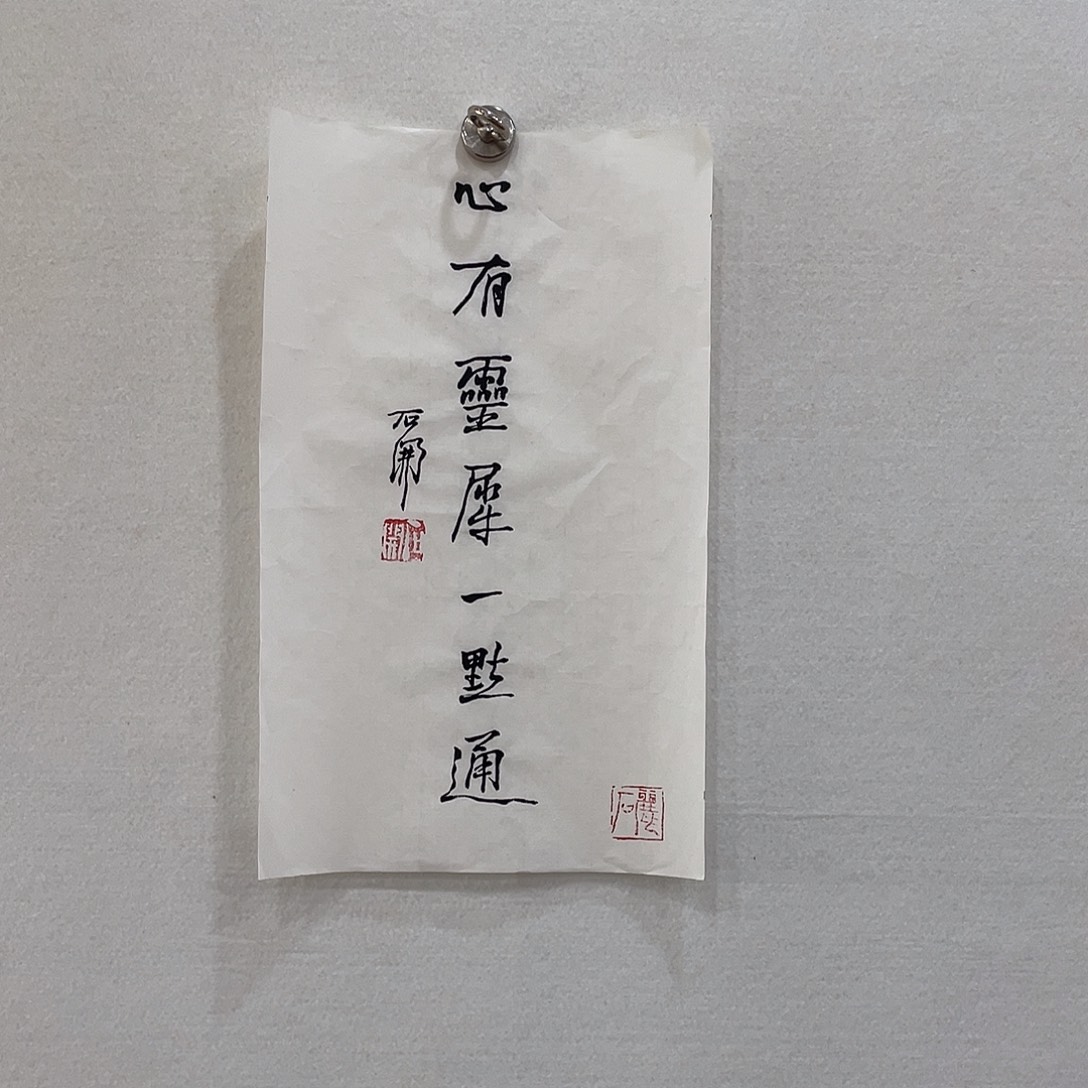 心有靈犀一點通
石開